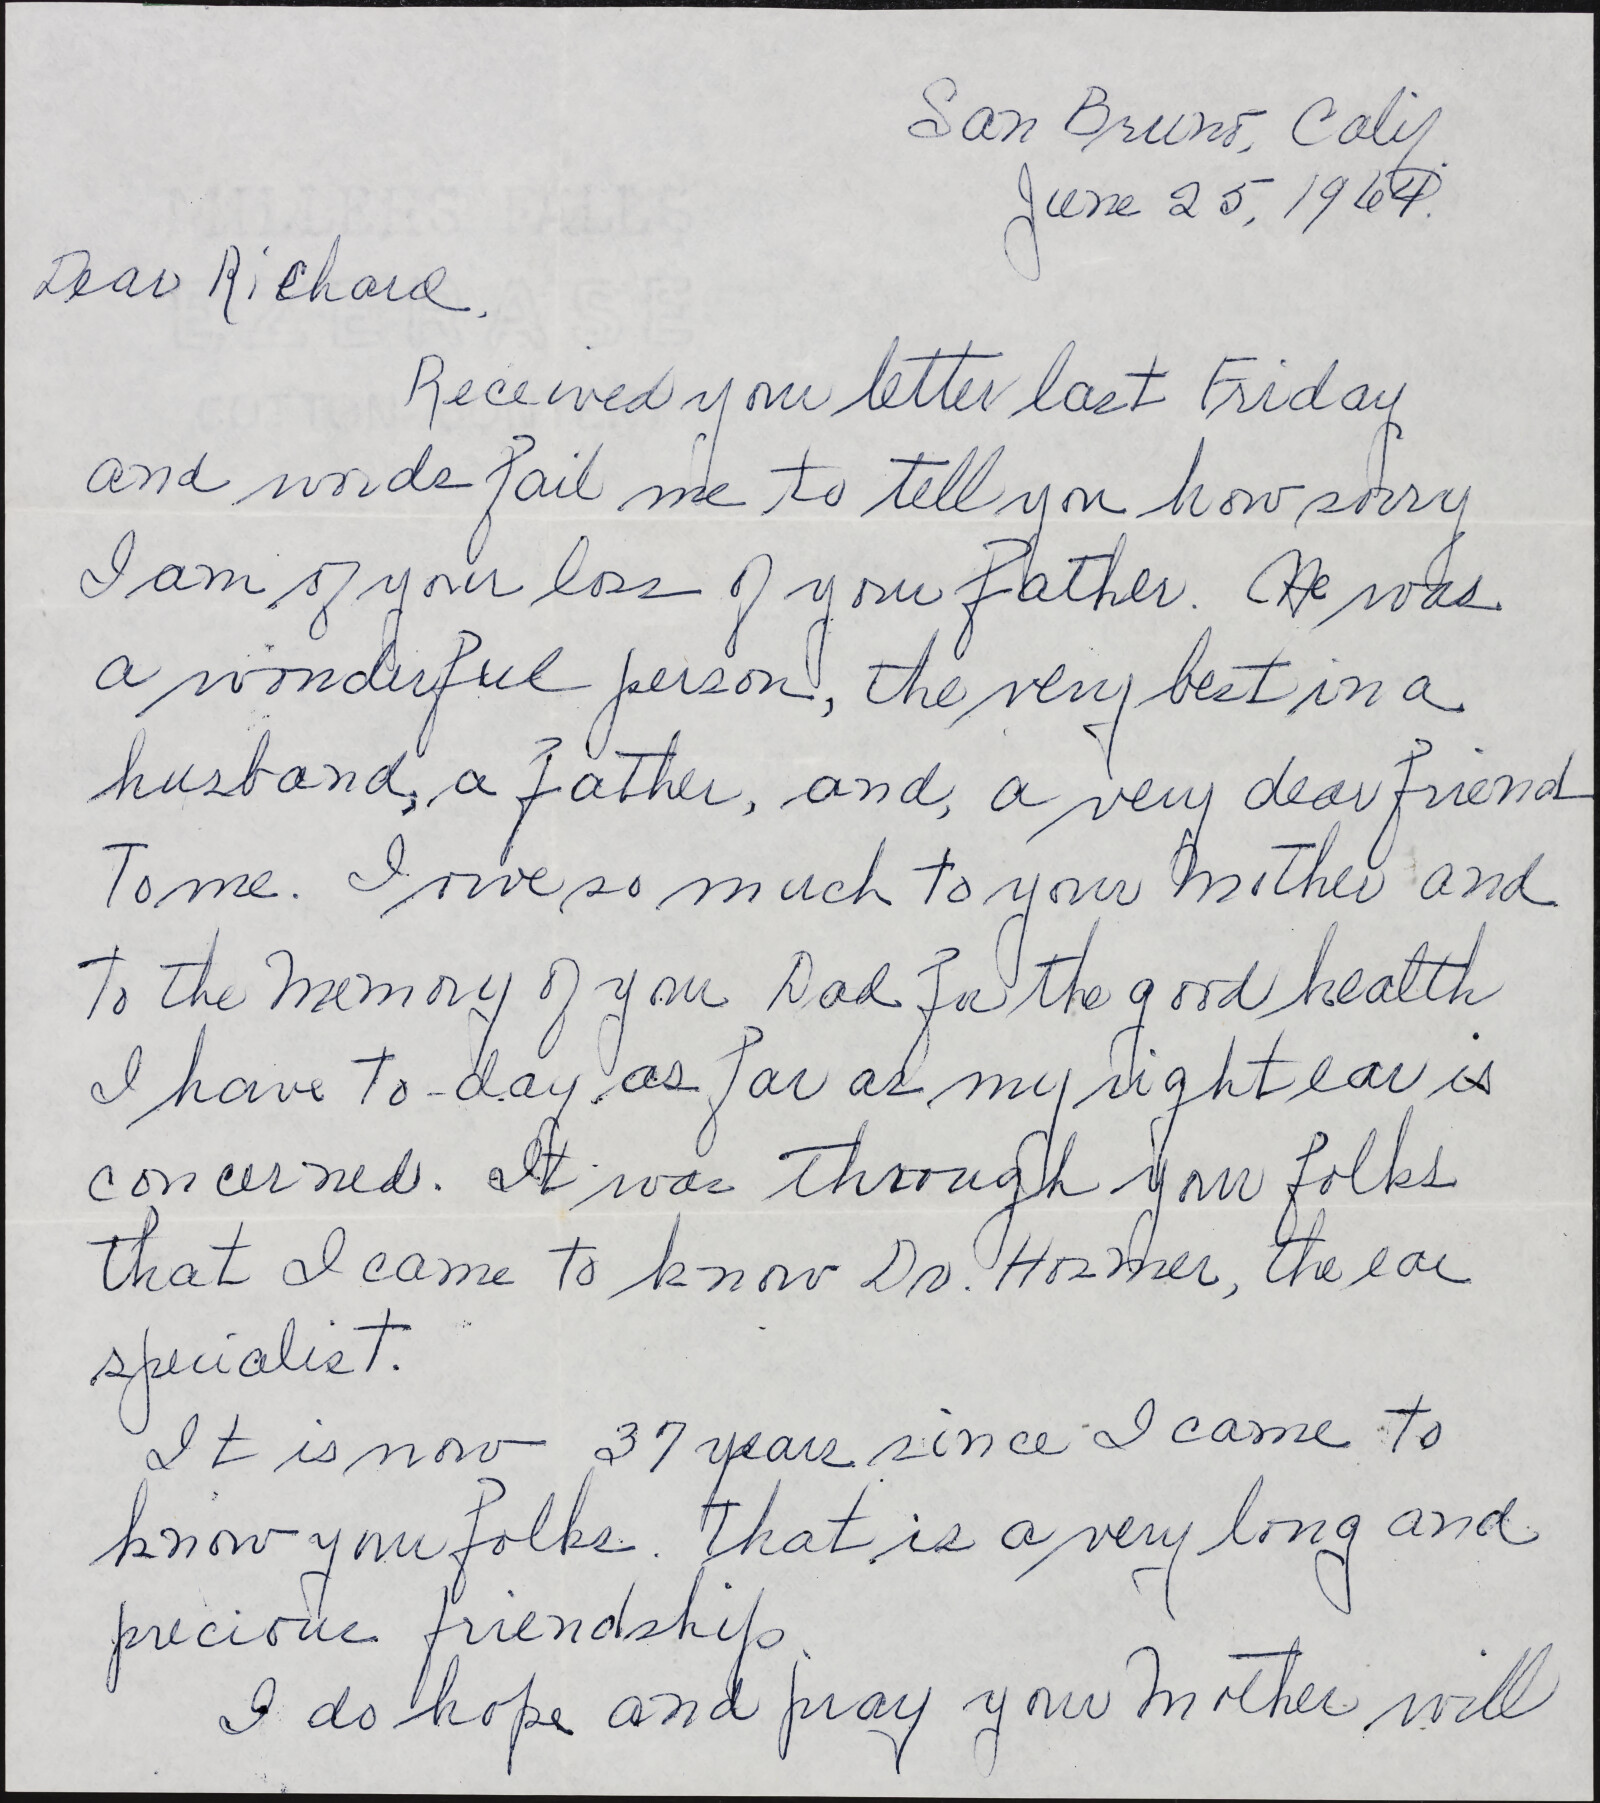 San Bruno, Calif.
June 25, 1964.
Dear Richard,
Received your letter last Friday
and words fail me to tell you how sorry
I am of your loss of your father. He was
a wonderful person, the very best in a
husband, a father, and, a very dear friend
to me. I owe so much to your Mother and
to the Memory of your Dad for the good health
I have to-day as far as my right ear is
concerned. It was through your folks
that I came to know Dr. Hosmer, the ear
specialist.
It is now 37 years since I came to
know your folks. That is a very long and
precious friendship.
I do hope and pray your Mother will